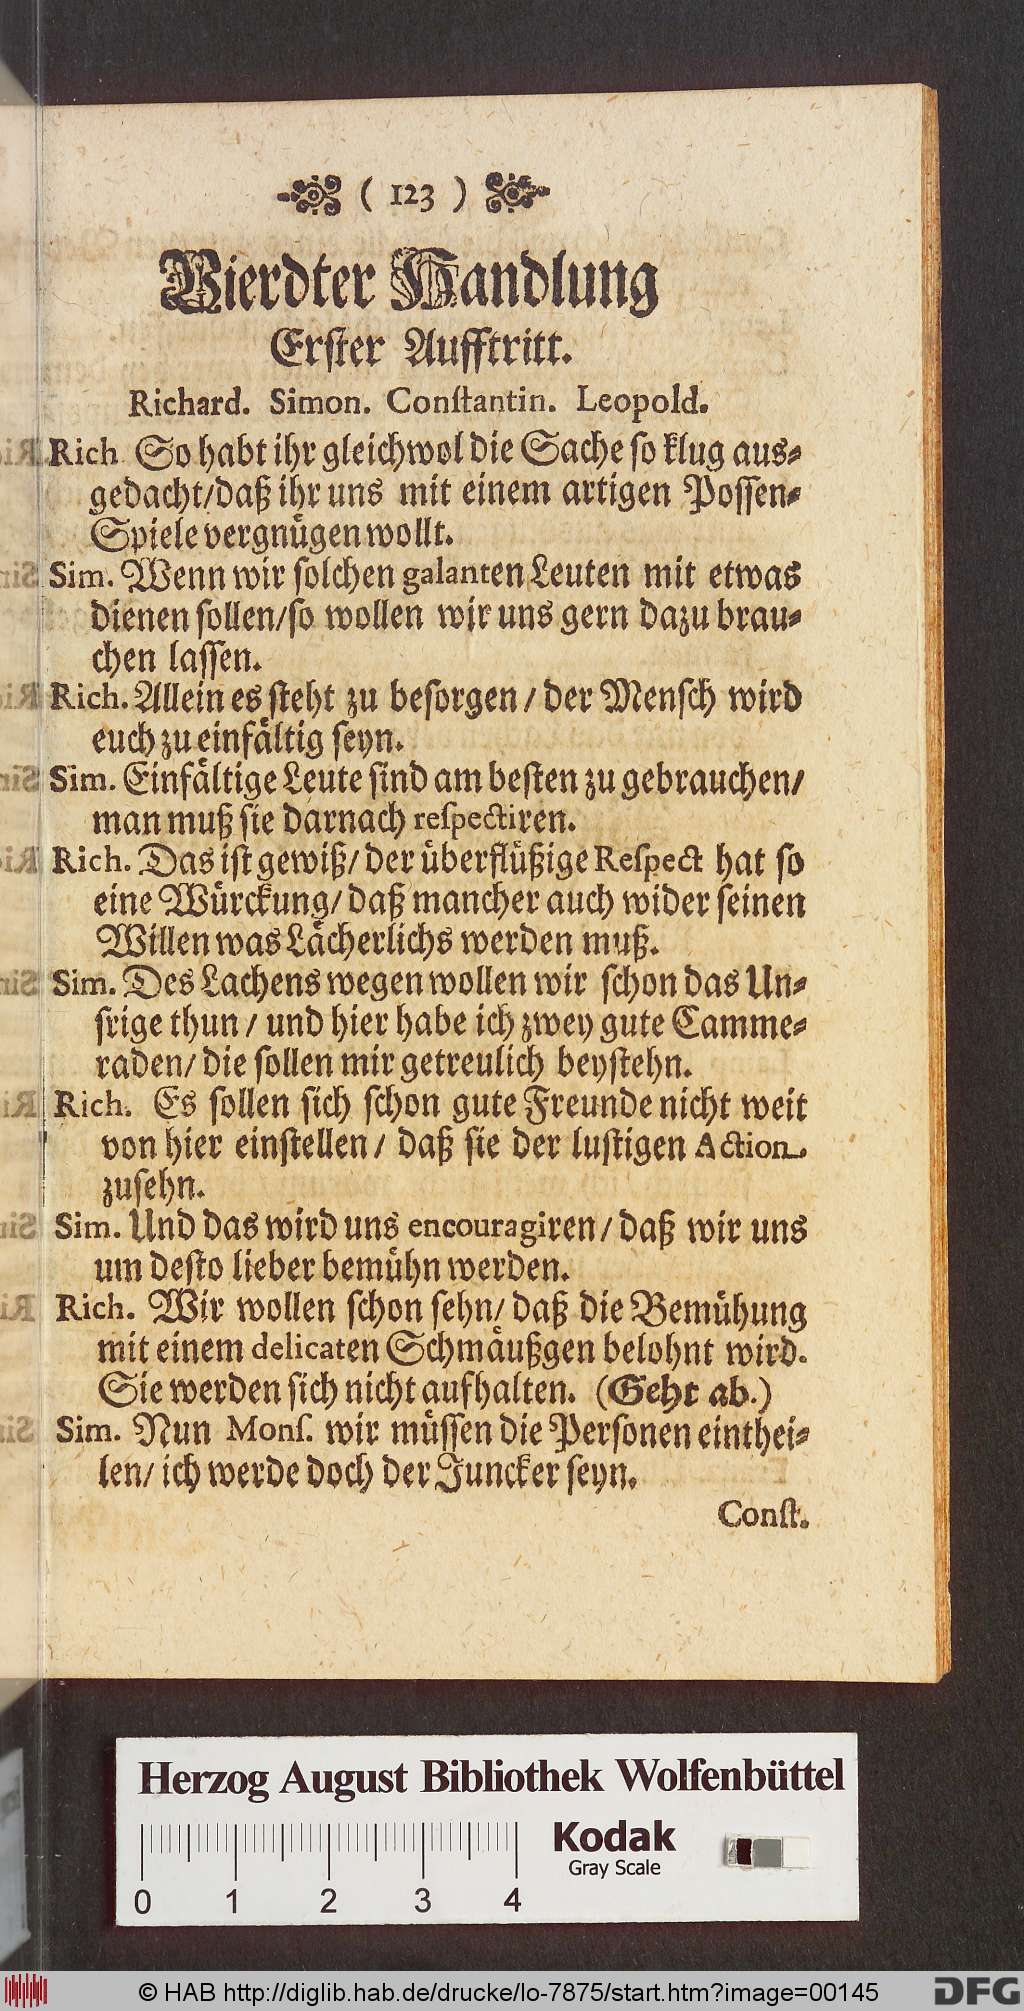 ( 123 )
Vierdter Handlung
Erster Aufftritt.
Richard. Simon. Conſtantin. Leopold.
Rich. So habt ihr gleichwol die Sache ſo klug aus-
gedacht/daß ihr uns mit einem artigen Poſſen-
Spiele vergnuͤgen wollt.
Sim. Wenn wir ſolchen galanten Leuten mit etwas
dienen ſollen/ſo wollen wir uns gern dazu brau-
chen laſſen.
Rich. Allein es ſteht zu beſorgen / der Menſch wird
euch zu einfaͤltig ſeyn.
Sim. Einfaͤltige Leute ſind am beſten zu gebrauchen/
man muß ſie darnach reſpectiren.
Rich. Das iſt gewiß/ der uͤberfluͤßige Reſpect hat ſo
eine Wuͤrckung/ daß mancher auch wider ſeinen
Willen was Laͤcherlichs werden muß.
Sim. Des Lachens wegen wollen wir ſchon das Un-
ſrige thun / und hier habe ich zwey gute Camme-
raden/ die ſollen mir getreulich beyſtehn.
Rich. Es ſollen ſich ſchon gute Freunde nicht weit
von hier einſtellen / daß ſie der luſtigen Action
zuſehn.
Sim. Und das wird uns encouragiren / daß wir uns
um deſto lieber bemuͤhn werden.
Rich. Wir wollen ſchon ſehn/ daß die Bemuͤhung
mit einem delicaten Schmaͤußgen belohnt wird.
Sie werden ſich nicht aufhalten. (Geht ab.)
Sim. Nun Monſ. wir muͤſſen die Perſonen einthei-
len/ ich werde doch der Juncker ſeyn.
Conſt.
Herzog August Bibliothek Wolfenbüttel
Kodak
Gray Scale
0 1 2 3 4
© HAB http://diglib.hab.de/drucke/lo-7875/start.htm?image=00145
DFG